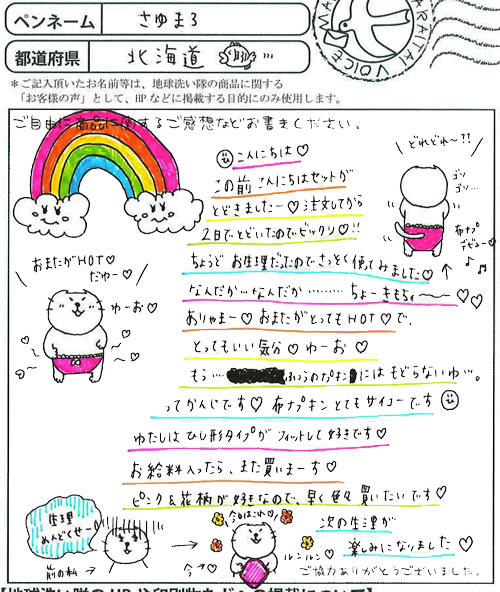 ペンネーム さゆまろ
都道府県 北海道
＊ご記入頂いたお名前等は、地球洗い隊の商品に関する
「お客様の声」として、HPなどに掲載する目的にのみ使用します。
ARAITAI VOICE
ご自由に商品に関するご感想などお書きください。
こんにちは♡
この前 こんにちはセットが
とどきましたー♡注文してから
2日でとどいたのでビックリ♡!!
ちょうど お生理だったのでさっそく使てみました♡
なんだか…なんだか……… ちょーきもちぃ〜〜〜♡
ありゃまー♡ おまたがとってもHOT♡で、
とってもいい気分♡わーお♡
もう… ふつうのナプキンにはもどらないゆ…。
ってかんじです♡ 布ナプキンとてもサイコーです
わたしは ひし形タイプが フィットして好きです♡
お給料入ったら、また買いまーす♡
ピンク&花柄が好きなので、早く色々買いたいです♡
次の生理が
楽しみになりました♡
ご協力ありがとうございました。
どれどれ〜?!
ゴソ
ゴソ…
布ナプ
デビュー♡
おまたがHOT♡
だゆー♡
わーお♡
生理
めんどくせー
前の私→
今日はこれ♡
ルンルン♡
今→♡